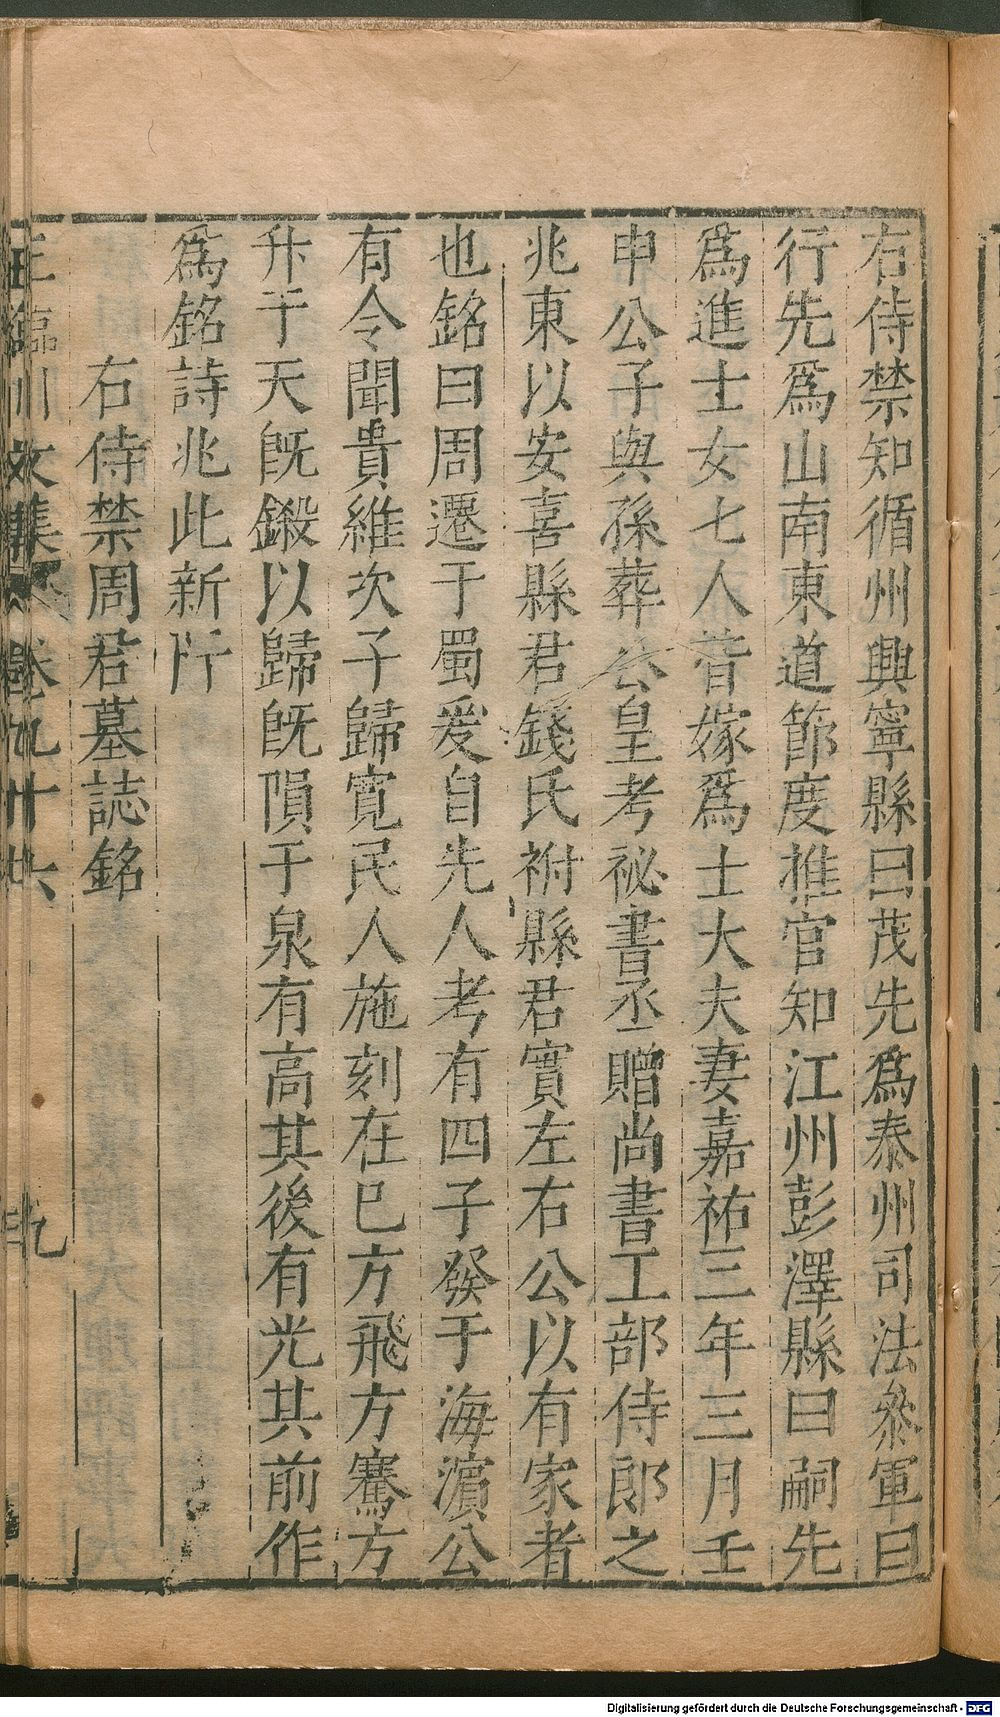 右侍禁知循州興寧縣曰茂先爲泰州司法叅軍曰
行先爲山南東道節度推官知江州彭澤縣曰嗣先
爲進士女七人皆嫁爲士大夫妻嘉祐三年三月壬
申公子與孫葬公皇考祕書丞贈尚書工部侍郎之
兆東以安喜縣君錢氏祔縣君實左右公以有家者
也銘曰周遷于蜀爰自先人考有四子發于海濵公
有令聞貴維次子歸寛民人施刻在巳方飛方騫方
升于天旣鎩以歸旣隕于泉有高其後有光其前作
爲銘詩兆此新阡
右侍禁周君墓誌銘
王臨川文集 卷九十六 九
Digitalisierung gefördert durch die Deutsche Forschungsgemeinschaft - DFG